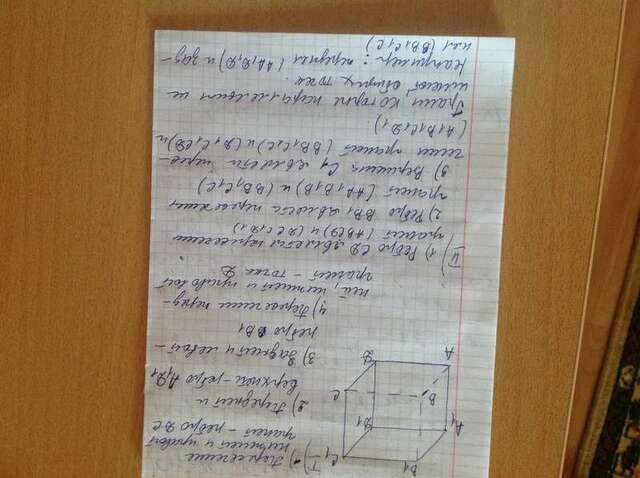 B1
C1
A1
D1
B
C
A
D
I) 1) Пересечение
нижней и правой
граней - ребро DC
2) Передней и
верхней - ребро A1D1
3) Задней и левой -
ребро BB1
4) Пересечении перед-
ней, нижней и правовой
граней - точка D
II) 1) Ребро CD является пересечении
граней (ABCD) и (DCC1D1)
2) Ребро BB1 является пересечении
граней (AA1B1B) и (BB1C1C)
3) Вершина C1 является перес-
чении граней (BB1C1C) и (D1C1CD) и
(A1B1C1D1)
Грани, которые параллельны не
имеют общих точек.
Например: передняя (AA1D1D) и зад-
няя (BB1C1C)